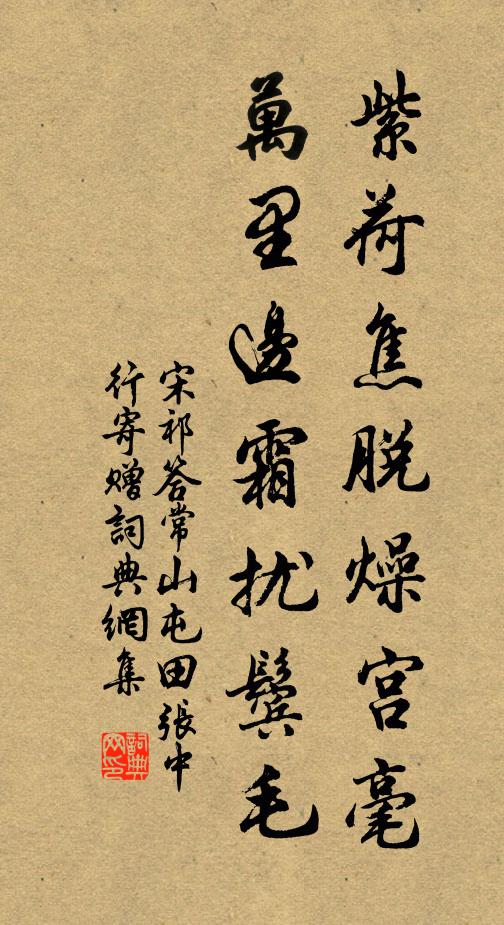 紫荷焦脱燥宫毫
萬里邊霜扰鬓毛
宋祁答常山屯田張中
行寄赠詞典網集
詞典网印